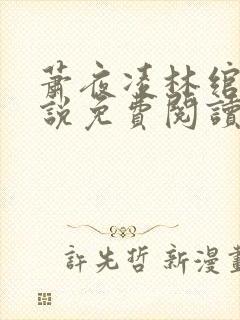 蕭夜凌林綰
說免費閱讀
許先哲 新漫畫